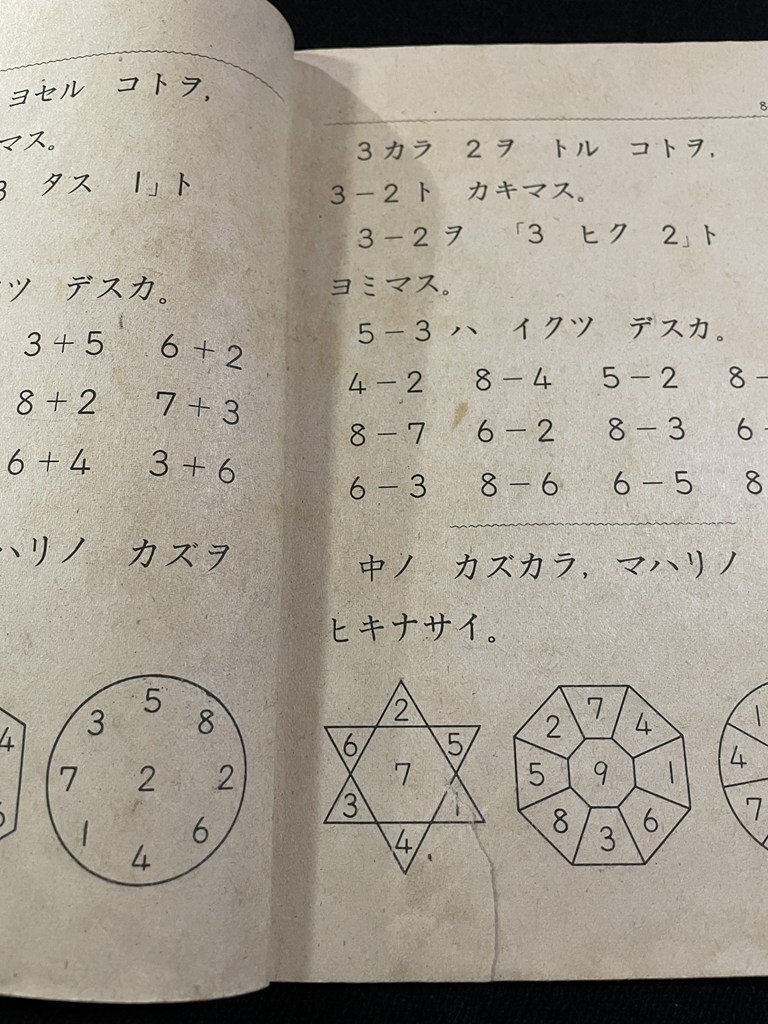 ヨセル コトヲ,
マス。
3 タス 1」ト
ツ デスカ。
3+5 6+2
8+2 7+3
6+4 3+6
ハリノ カズヲ
4
3 5 8
7 2 2
1 4 6
8
3カラ 2ヲ トル コトヲ,
3-2ト カキマス。
3-2ヲ 「3 ヒク 2」ト
ヨミマス。
5-3ハ イクツ デスカ。
4-2 8-4 5-2 8-
8-7 6-2 8-3 6-
6-3 8-6 6-5 8
中ノ カズカラ, マハリノ
ヒキナサイ。
2
6 5
7
3 1
4
2 7 4
5 9 1
8 3 6
1
4
7